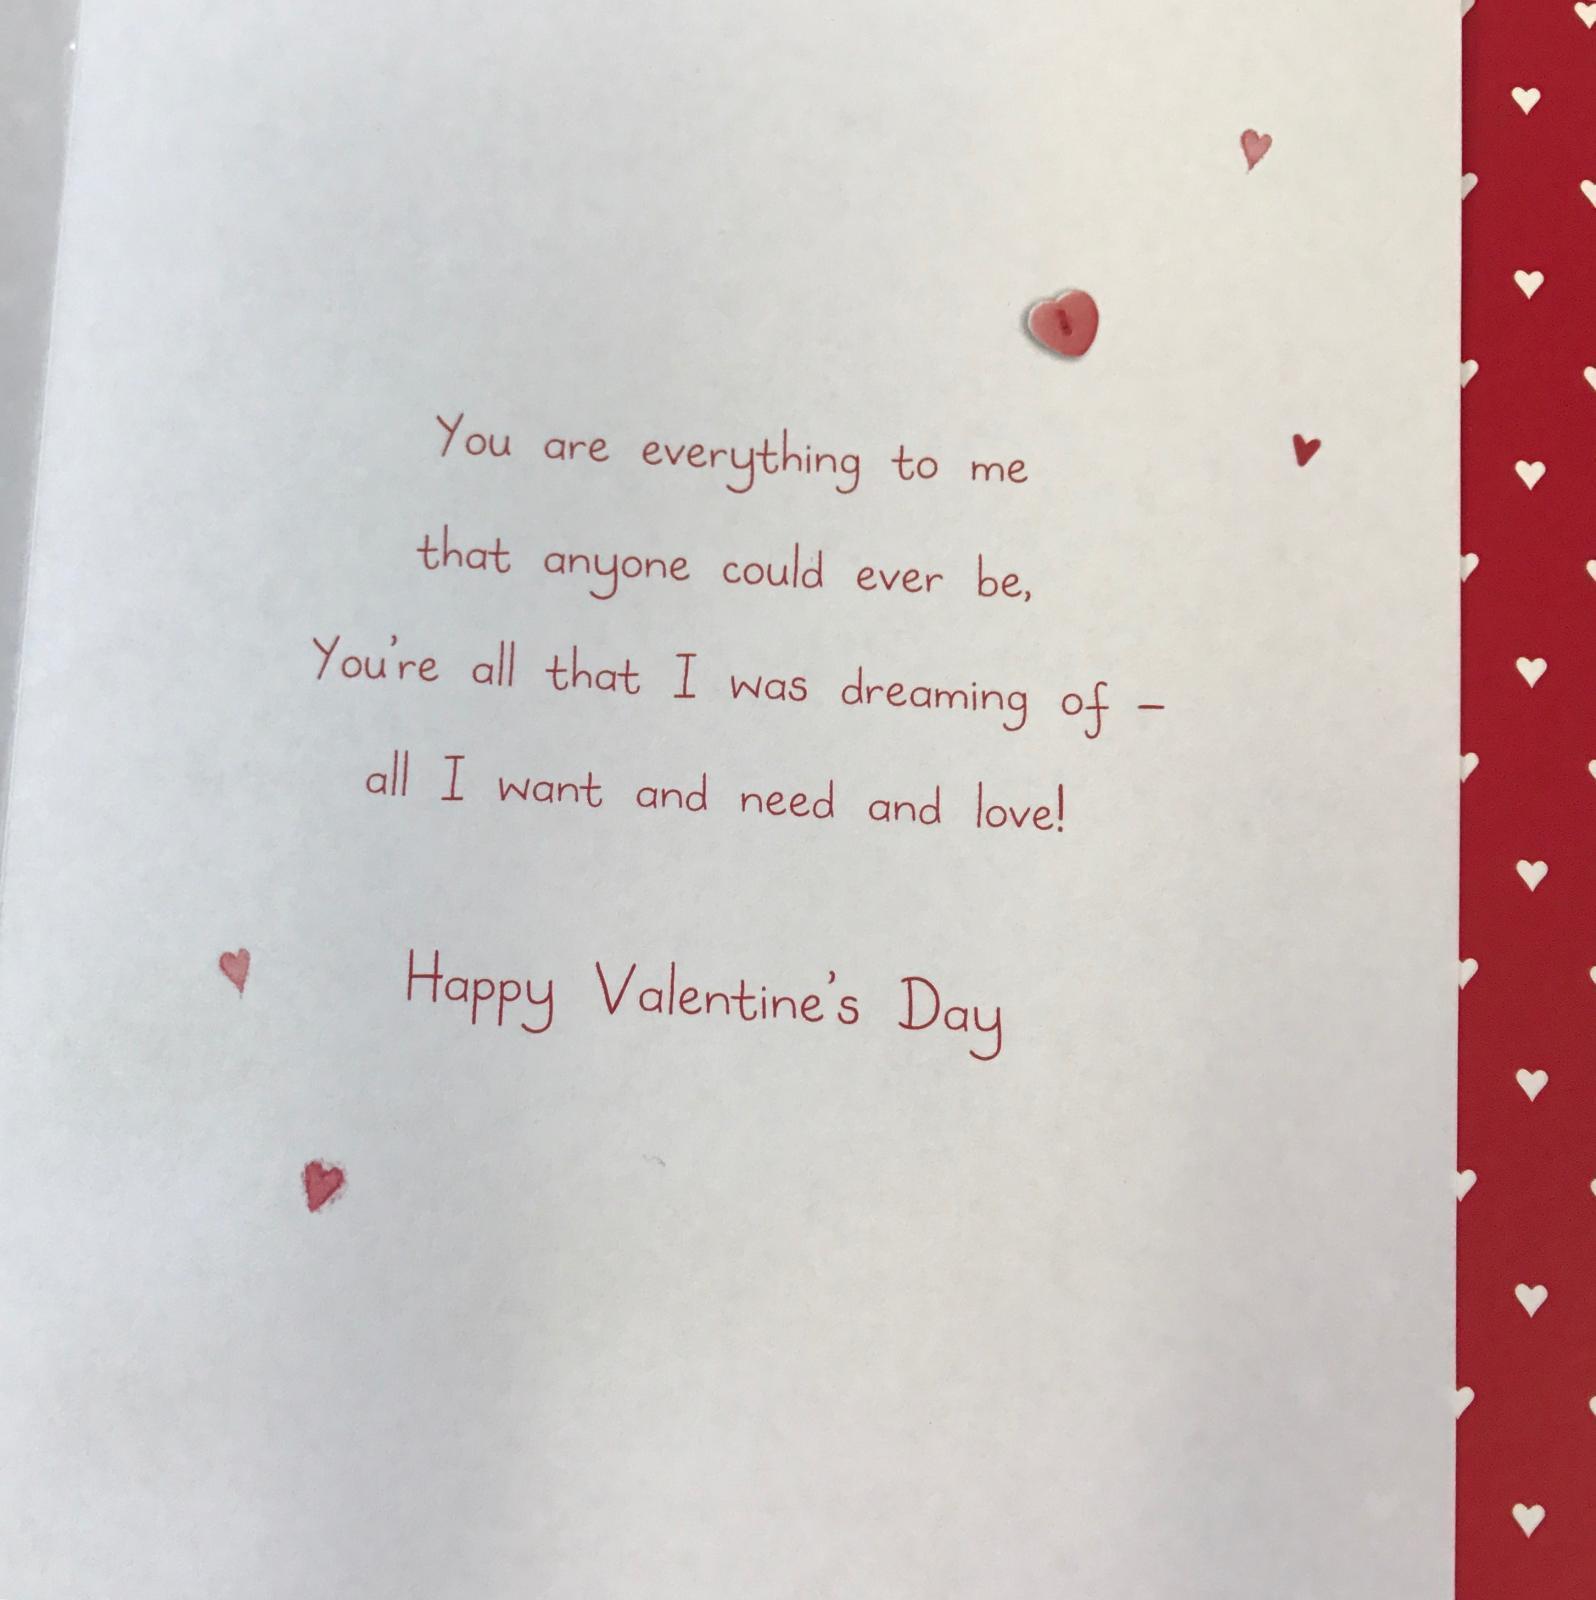 You are everything to me
that anyone could ever be,
You're all that I was dreaming of –
all I want and need and love!
Happy Valentine's Day